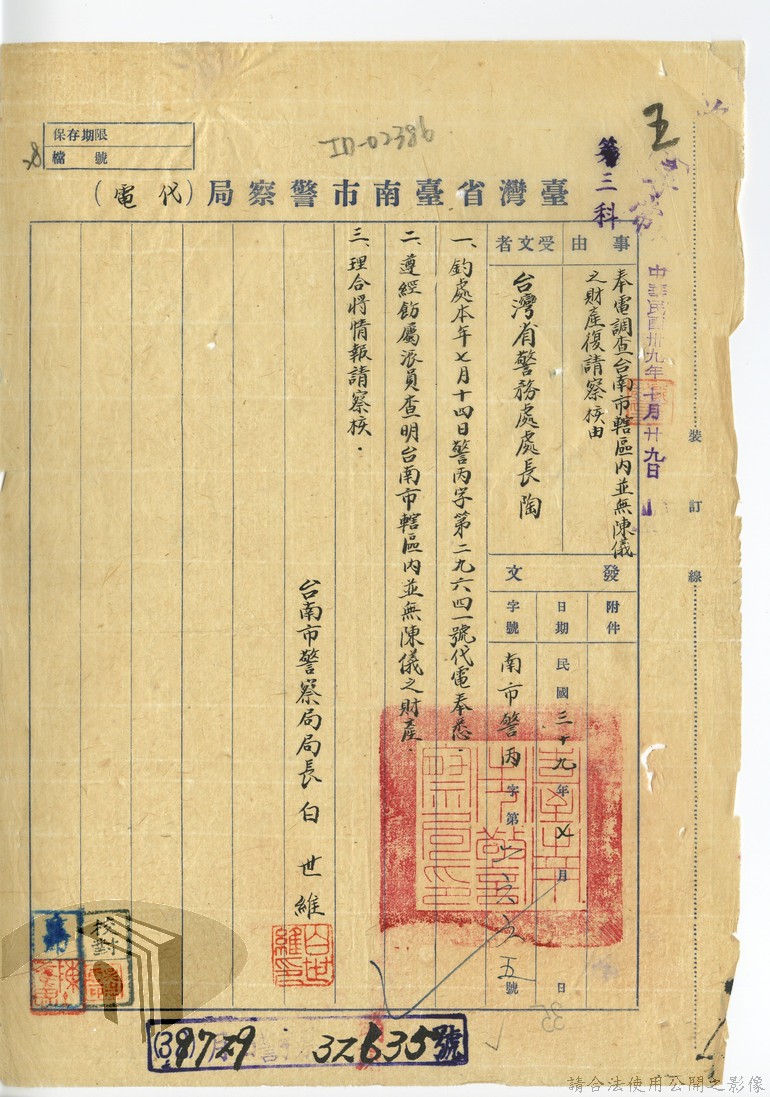 保存期限
檔號
ID-02386
第三科
臺灣省臺南市警察局（代電）
中華民國卅九年 月廿九日
事由
奉電調查台南市轄區内並無陳儀
之財產復請察核由
受文者
台灣省警務處處長陶
發文
附件
日期
民國三十九年七月 日
字號
南市警丙字第 五號
一、鈞處本年七月十四日警丙字第二九六四一號代電奉悉.
二、遵經飭屬派員查明台南市轄區内並無陳儀之財產.
三、理合將情報請察核.
台南市警察局局長白世維
白世維印
校對
裝訂線
(39) 32635號
請合法使用公開之影像